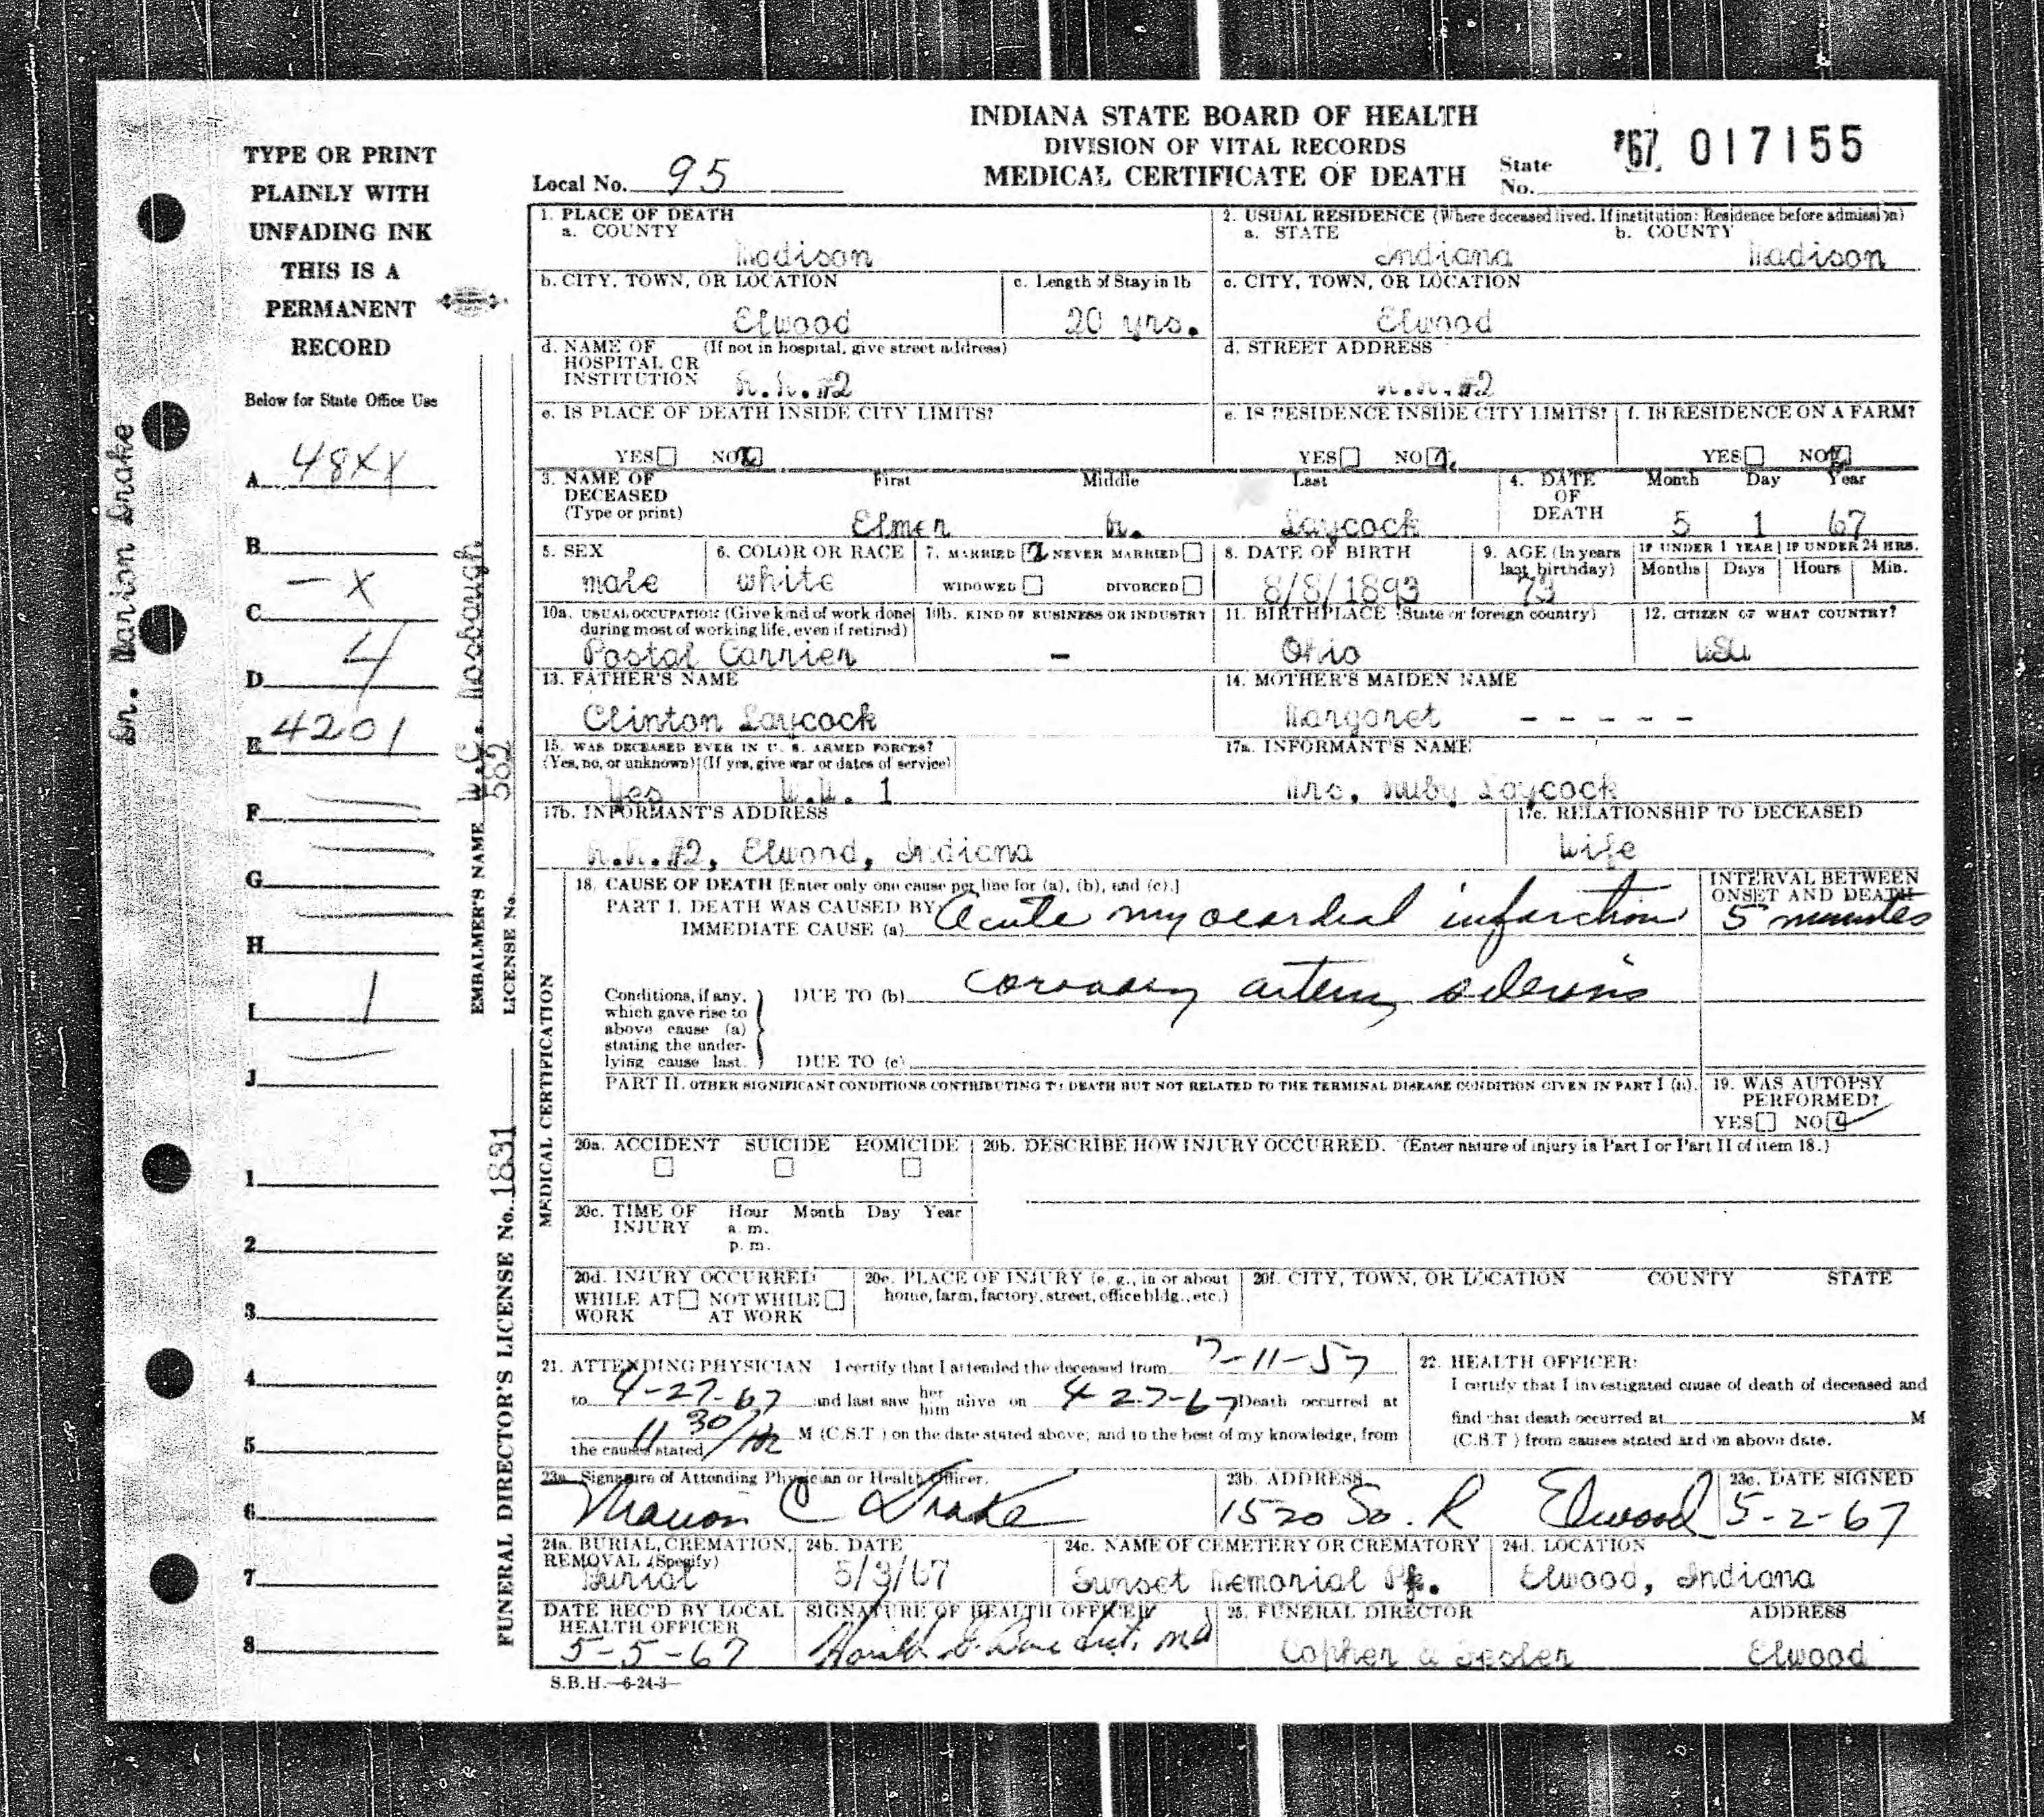 INDIANA STATE BOARD OF HEALTH
DIVISION OF VITAL RECORDS
MEDICAL CERTIFICATE OF DEATH
Local No. 95
State No. '67 017155
TYPE OR PRINT
PLAINLY WITH
UNFADING INK
THIS IS A
PERMANENT
RECORD
Below for State Office Use
A 48XX
B
C – X
D 4
E 4201
F
G
H
I 1
J
1
2
3
4
5
6
7
8
Dr. Marion Drake
EMBALMER'S NAME W.C.
LICENSE No. 582
FUNERAL DIRECTOR'S LICENSE No. 1831
1. PLACE OF DEATH
a. COUNTY
Madison
2. USUAL RESIDENCE (Where deceased lived. If institution: Residence before admission)
a. STATE b. COUNTY
Indiana Madison
b. CITY, TOWN, OR LOCATION
Elwood
c. Length of Stay in 1b
20 yrs.
c. CITY, TOWN, OR LOCATION
Elwood
d. NAME OF (If not in hospital, give street address)
HOSPITAL OR
INSTITUTION R.R.#2
d. STREET ADDRESS
R.R.#2
e. IS PLACE OF DEATH INSIDE CITY LIMITS?
YES NO X
e. IS RESIDENCE INSIDE CITY LIMITS?
YES NO X
f. IS RESIDENCE ON A FARM?
YES NO X
3. NAME OF First Middle Last
DECEASED
(Type or print) Elmer Laycock
4. DATE Month Day Year
OF
DEATH 5 1 67
5. SEX
male
6. COLOR OR RACE
white
7. MARRIED X NEVER MARRIED
WIDOWED DIVORCED
8. DATE OF BIRTH
8/8/1893
9. AGE (In years
last birthday)
73
IF UNDER 1 YEAR IF UNDER 24 HRS.
Months Days Hours Min.
10a. USUAL OCCUPATION (Give kind of work done
during most of working life, even if retired)
Postal Carrier
10b. KIND OF BUSINESS OR INDUSTRY
-
11. BIRTHPLACE (State or foreign country)
Ohio
12. CITIZEN OF WHAT COUNTRY?
USA
13. FATHER'S NAME
Clinton Laycock
14. MOTHER'S MAIDEN NAME
Margaret - - - - -
15. WAS DECEASED EVER IN U. S. ARMED FORCES?
(Yes, no, or unknown) (If yes, give war or dates of service)
Yes W.W. 1
17a. INFORMANT'S NAME
Mrs. Ruby Laycock
17b. INFORMANT'S ADDRESS
R.R.#2, Elwood, Indiana
17c. RELATIONSHIP TO DECEASED
Wife
MEDICAL CERTIFICATION
18. CAUSE OF DEATH [Enter only one cause per line for (a), (b), and (c).]
INTERVAL BETWEEN
ONSET AND DEATH
PART I. DEATH WAS CAUSED BY:
IMMEDIATE CAUSE (a) Acute myocardial infarction 5 minutes
Conditions, if any,
which gave rise to
above cause (a)
stating the under-
lying cause last.
DUE TO (b) coronary artery sclerosis
DUE TO (c)
PART II. OTHER SIGNIFICANT CONDITIONS CONTRIBUTING TO DEATH BUT NOT RELATED TO THE TERMINAL DISEASE CONDITION GIVEN IN PART I (a).
19. WAS AUTOPSY
PERFORMED?
YES NO ✓
20a. ACCIDENT SUICIDE HOMICIDE
20b. DESCRIBE HOW INJURY OCCURRED. (Enter nature of injury in Part I or Part II of item 18.)
20c. TIME OF Hour Month Day Year
INJURY a. m.
p. m.
20d. INJURY OCCURRED
WHILE AT NOT WHILE
WORK AT WORK
20e. PLACE OF INJURY (e. g., in or about
home, farm, factory, street, office bldg., etc.)
20f. CITY, TOWN, OR LOCATION COUNTY STATE
21. ATTENDING PHYSICIAN I certify that I attended the deceased from 7-11-57
to 4-27-67 and last saw her him alive on 4-27-67 Death occurred at
11 30/ M (C.S.T.) on the date stated above; and to the best of my knowledge, from
the causes stated
22. HEALTH OFFICER:
I certify that I investigated cause of death of deceased and
find that death occurred at M
(C.S.T.) from causes stated and on above date.
23a. Signature of Attending Physician or Health Officer.
Marion C Drake
23b. ADDRESS
1520 So. R Elwood
23c. DATE SIGNED
5-2-67
24a. BURIAL, CREMATION,
REMOVAL (Specify)
Burial
24b. DATE
5/3/67
24c. NAME OF CEMETERY OR CREMATORY
Sunset Memorial Pk.
24d. LOCATION
Elwood, Indiana
DATE REC'D BY LOCAL
HEALTH OFFICER
5-5-67
SIGNATURE OF HEALTH OFFICER
MD
25. FUNERAL DIRECTOR ADDRESS
Copher & Fesler Elwood
S.B.H.—6-24-3—